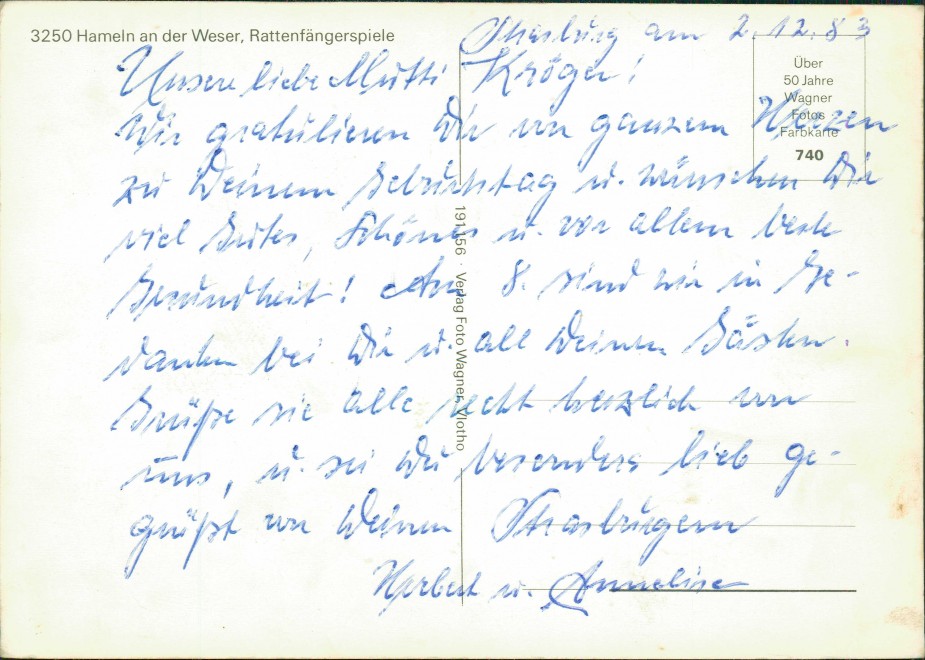 3250 Hameln an der Weser, Rattenfängerspiele
Strasburg am 2.12.83
Über
50 Jahre
Wagner
Fotos
Farbkarte
740
Unsere liebe Mutti Kröger!
Wir gratulieren Dir von ganzem Herzen
zu Deinem Geburtstag u. wünschen Dir
viel Gutes, Schönes u. vor allem beste
Gesundheit! Am 8. sind wir in Ge-
danken bei Dir u. all Deinen Gästen.
Grüße sie alle recht herzlich von
uns, u. sei Du besonders lieb ge-
grüßt von Deinen Strasburgern
Herbert u. Annelise
191 156 · Verlag Foto Wagner, Vlotho